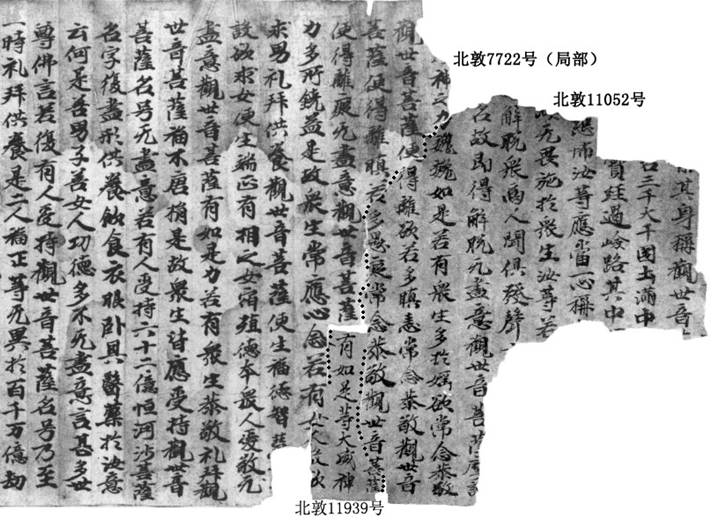 北敦7722号（局部）
北敦11052号
其身稱觀世音
三千大千国土滿中
賫經過嶮路其中
恐怖汝等應當一心稱
以无畏施於衆生汝等若
解脱衆商人聞俱發聲
名故即得解脱无盡意觀世音菩薩摩訶
神之力巍巍如是若有衆生多於婬欲常念恭敬
觀世音菩薩便得離欲若多瞋恚常念恭敬觀世音
菩薩便得離瞋若多愚癡常念恭敬觀世音菩薩
便得離癡无盡意觀世音菩薩有如是等大威神
力多所饒益是故衆生常應心念若有女人設欲
求男礼拜供養觀世音菩薩便生福德智慧
設欲求女便生端正有相之女宿殖德本衆人愛敬无
盡意觀世音菩薩有如是力若有衆生恭敬礼拜觀
世音菩薩福不唐捐是故衆生皆應受持觀世音
菩薩名号无盡意若有人受持六十二億恒河沙菩薩
名字復盡形供養飲食衣服卧具醫藥於汝意
云何是善男子善女人功德多不无盡意言甚多世
尊佛言若復有人受持觀世音菩薩名号乃至
一時礼拜供養是二人福正等无異於百千万億劫
北敦11939号